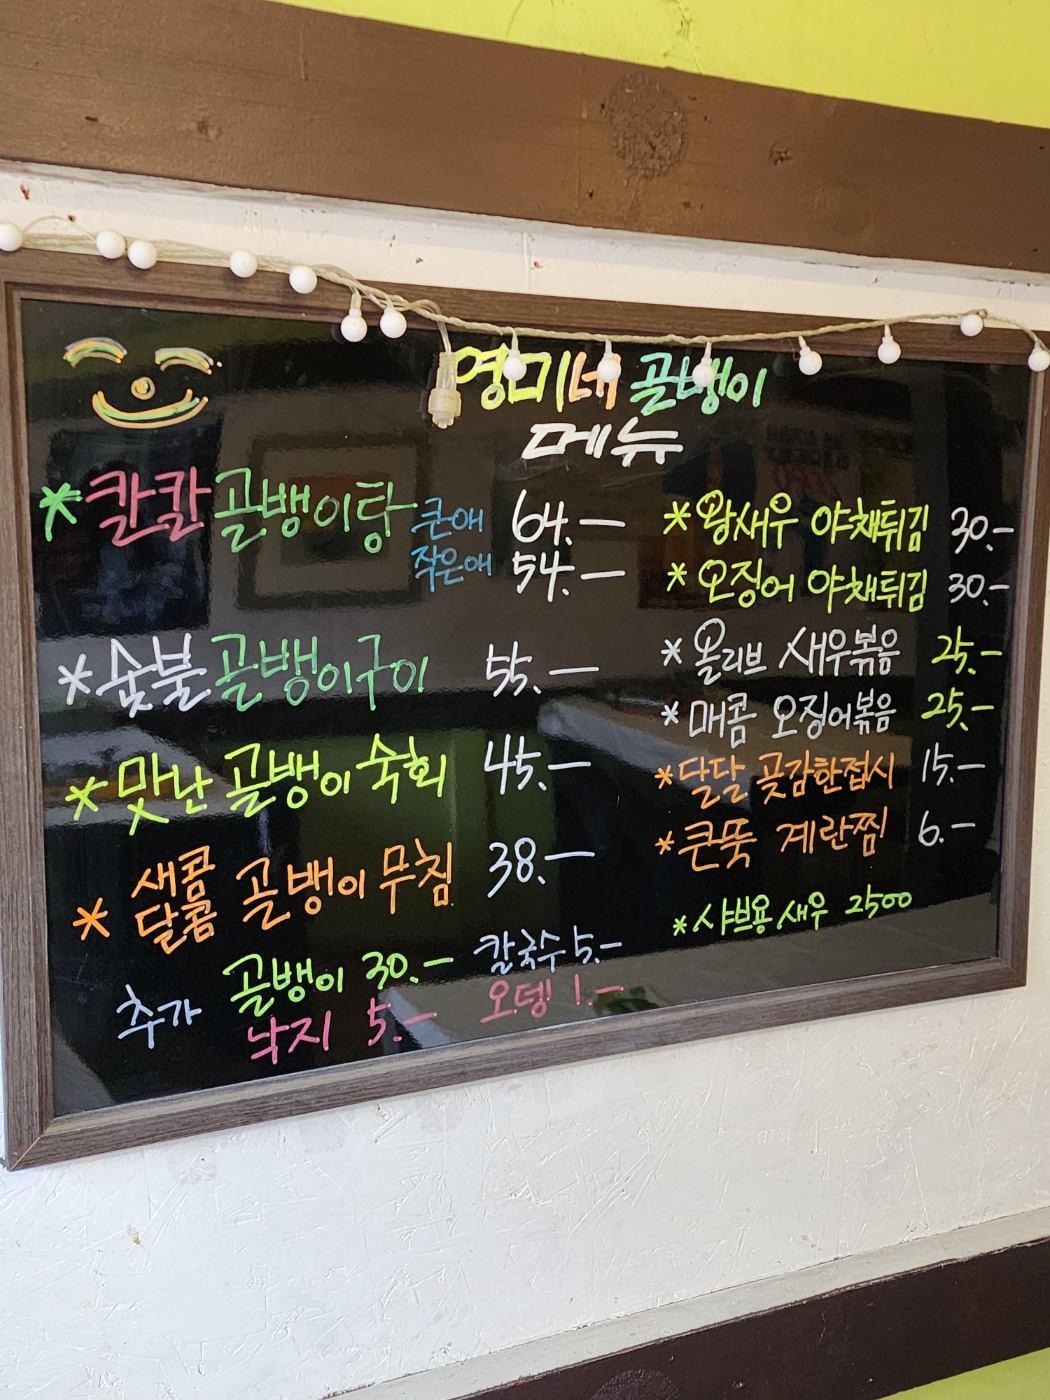 영미네 골뱅이
메뉴
*칼칼 골뱅이탕 큰애 64.—
작은애 54.—
*숯불 골뱅이구이 55.—
*맛난 골뱅이 숙회 45.—
*새콤달콤 골뱅이 무침 38.—
추가 골뱅이 30.— 칼국수 5.—
낙지 5.— 오뎅 1.—
*왕새우 야채튀김 30.—
*오징어 야채튀김 30.—
*올리브 새우볶음 25.—
*매콤 오징어볶음 25.—
*달달 곶감한접시 15.—
*큰뚝 계란찜 6.—
*샤브용 새우 2500